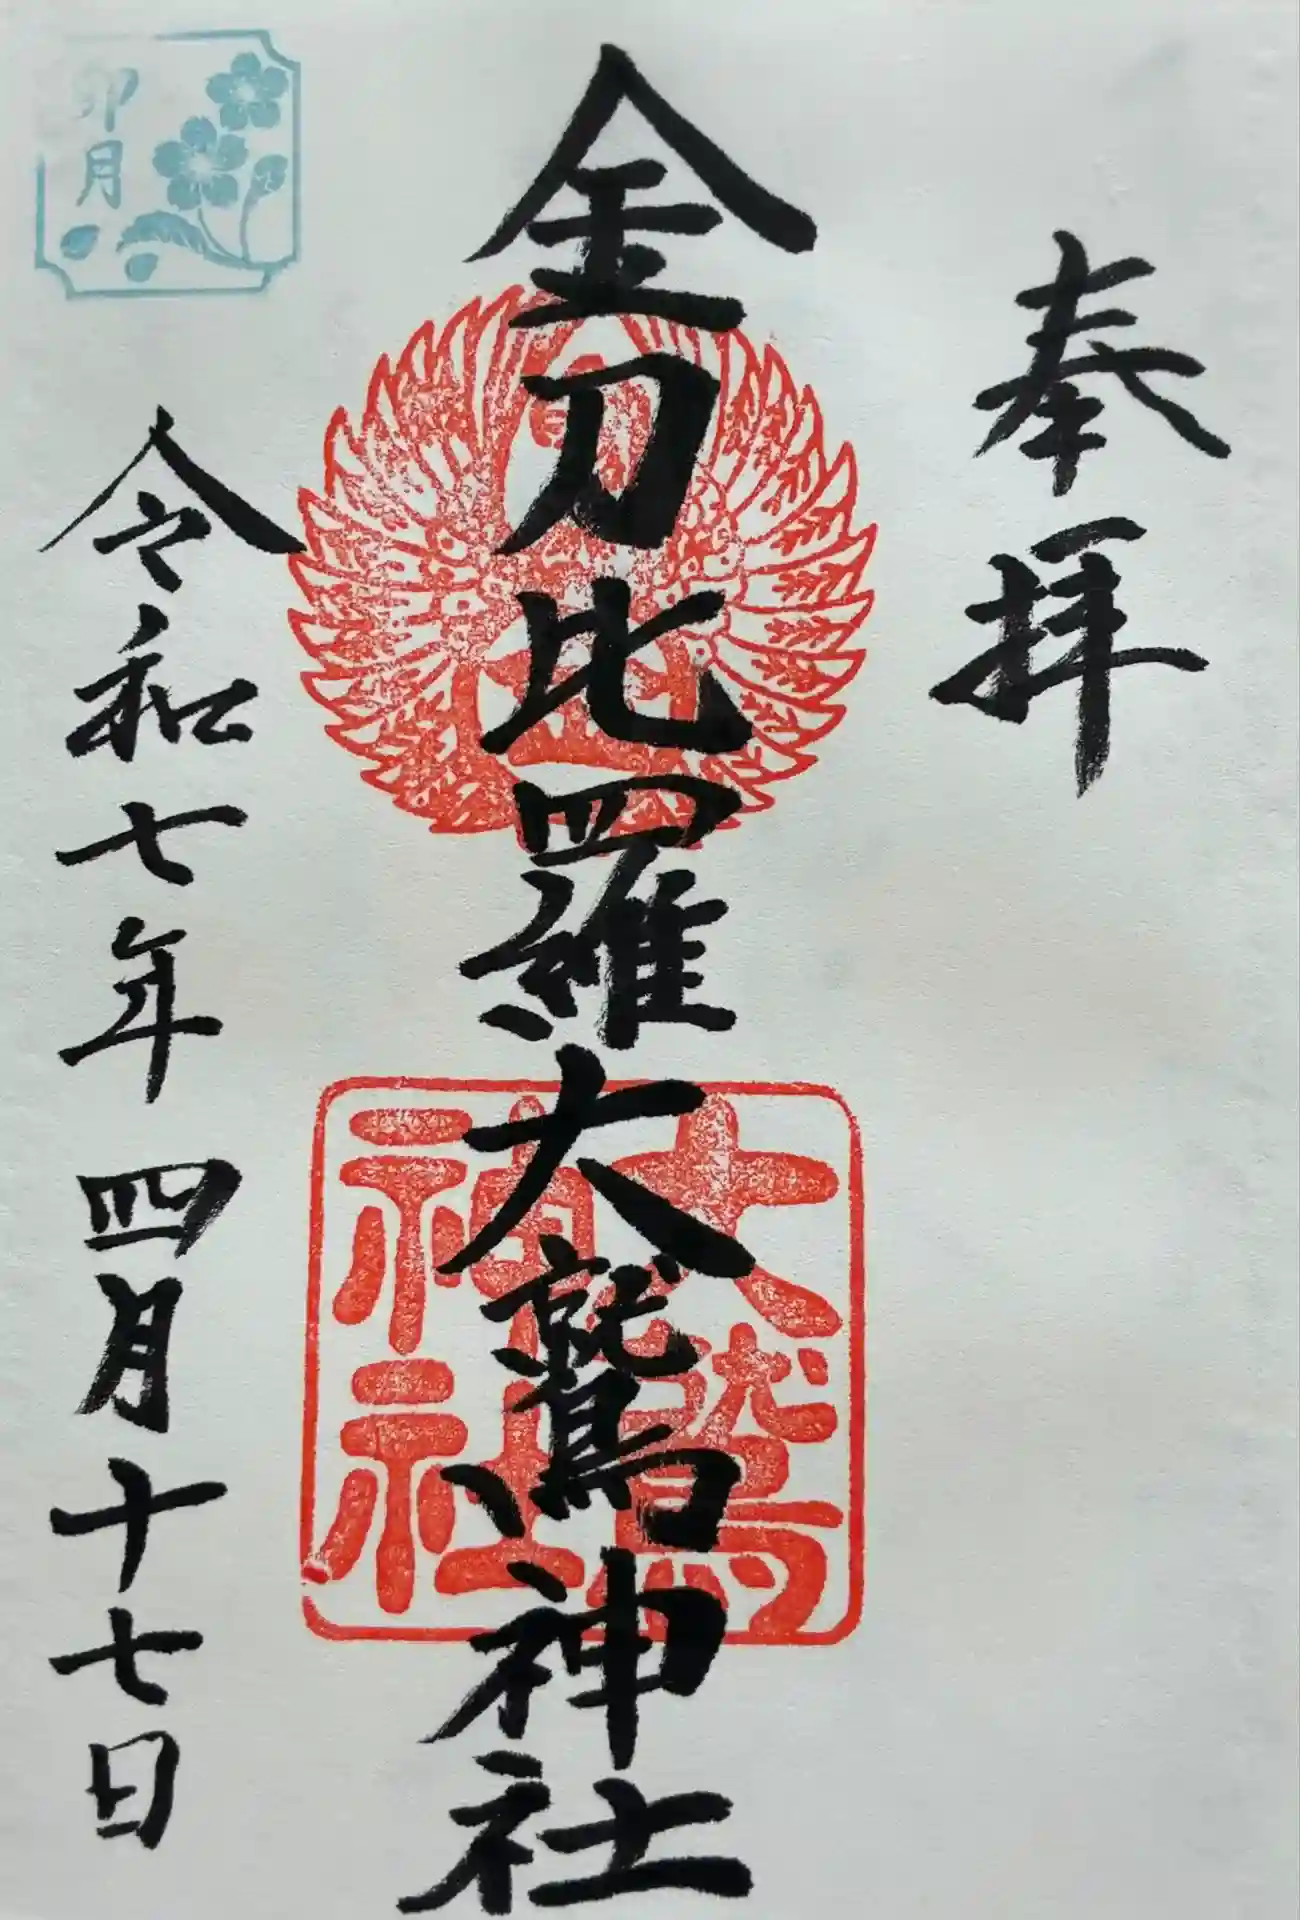 奉拝
金刀比羅大鷲神社
大鷲
神社
令和七年四月十七日
卯月